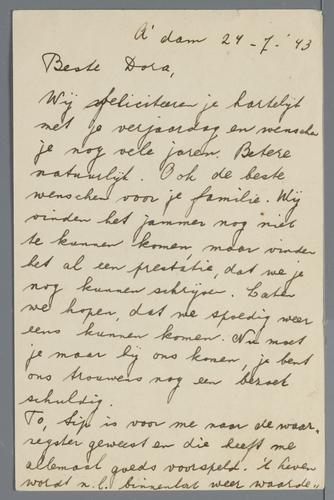 A'dam 24-7-'43
Beste Dora,
Wij feliciteren je hartelijk
met je verjaardag en wenschen
je nog vele jaren. Betere
natuurlijk. Ook de beste
wenschen voor je familie. Wij
vinden het jammer nog niet
te kunnen komen, maar vinden
het al een prestatie, dat we je
nog kunnen schrijven. Laten
we hopen, dat we spoedig weer
eens kunnen komen. Nu moet
je maar bij ons komen, je bent
ons trouwens nog een bezoek
schuldig.
To, Sip is voor me naar de waar-
zegster geweest en die heeft me
allemaal goeds voorspeld. 't leven
wordt n.l. binnenkort weer waarde-